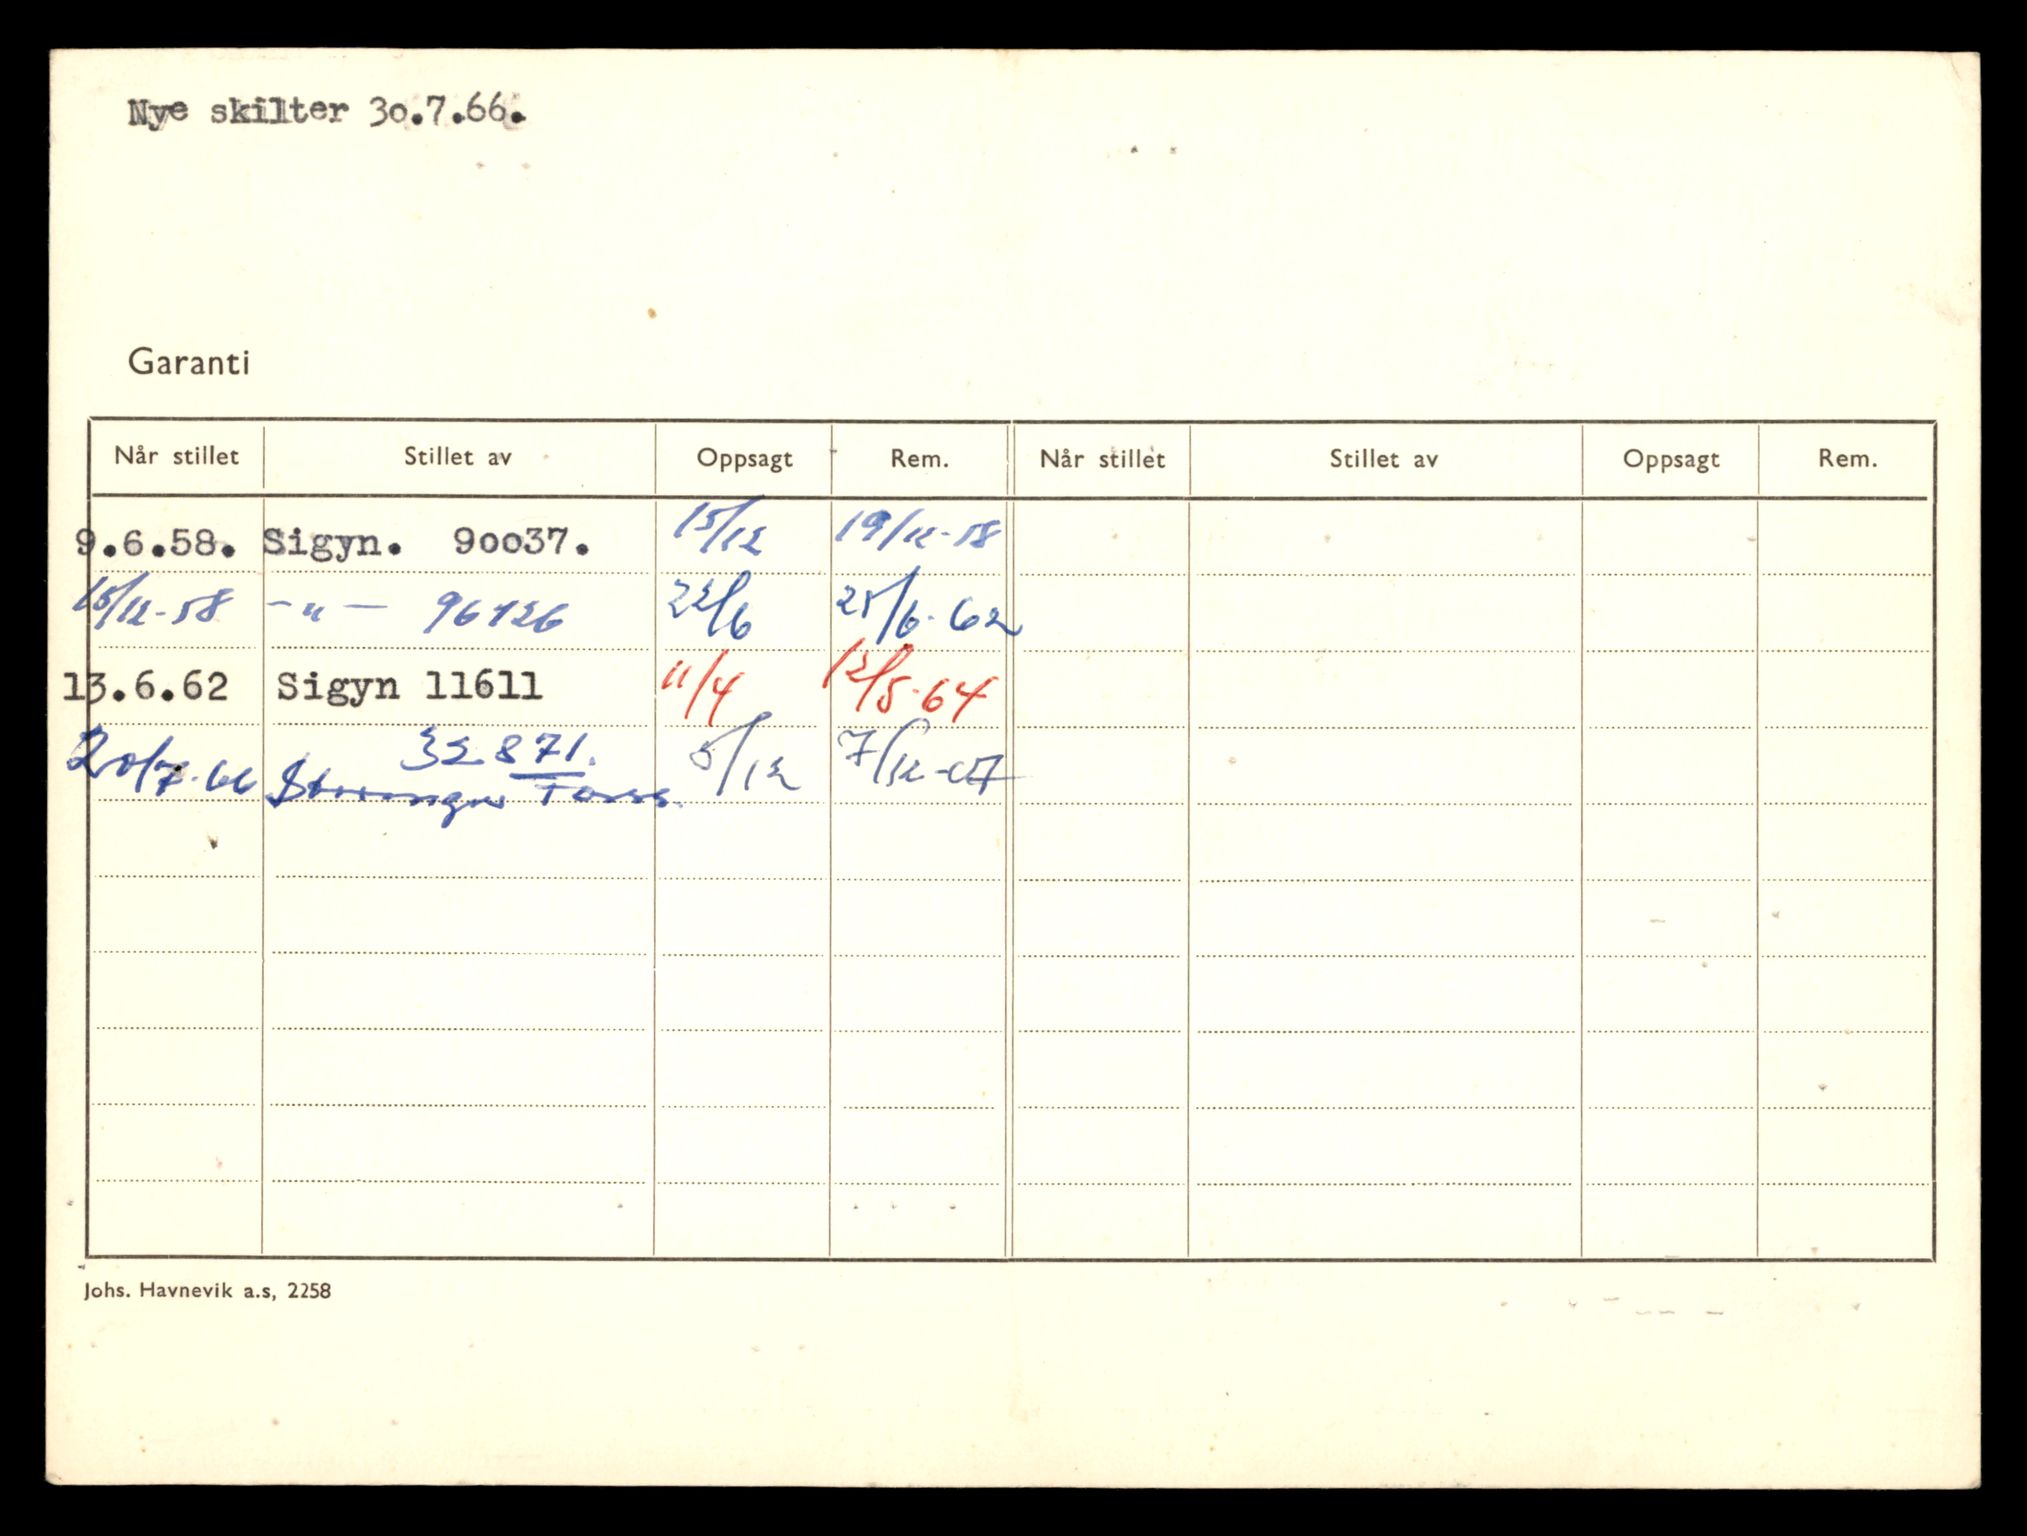 Nye skilter 30.7.66.
Garanti
Når stillet Stillet av Oppsagt Rem. Når stillet Stillet av Oppsagt Rem.
9.6.58. Sigyn. 90037. 15/12 19/12-58
15/12-58 -"- 96126 22/6 25/6-62
13.6.62 Sigyn 11611 11/4 12/5-64
32871.
20/7-66 5/12 7/12-67
Johs. Havnevik a.s, 2258